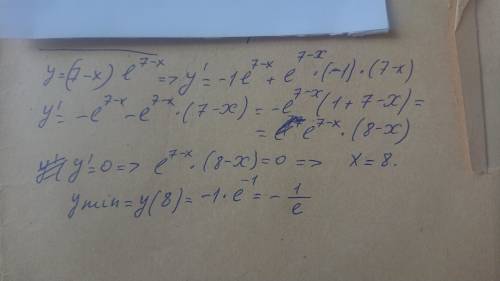 y=(7-x) e^{7-x} => y' = -1e^{7-x} + e^{7-x}·(-1)·(7-x)
y' = -e^{7-x} - e^{7-x}·(7-x) = -e^{7-x}(1+7-x) =
= e^{7-x}·(8-x)
y'=0 => e^{7-x}·(8-x)=0 => x=8.
ymin = y(8) = -1·e^{-1} = -1/e